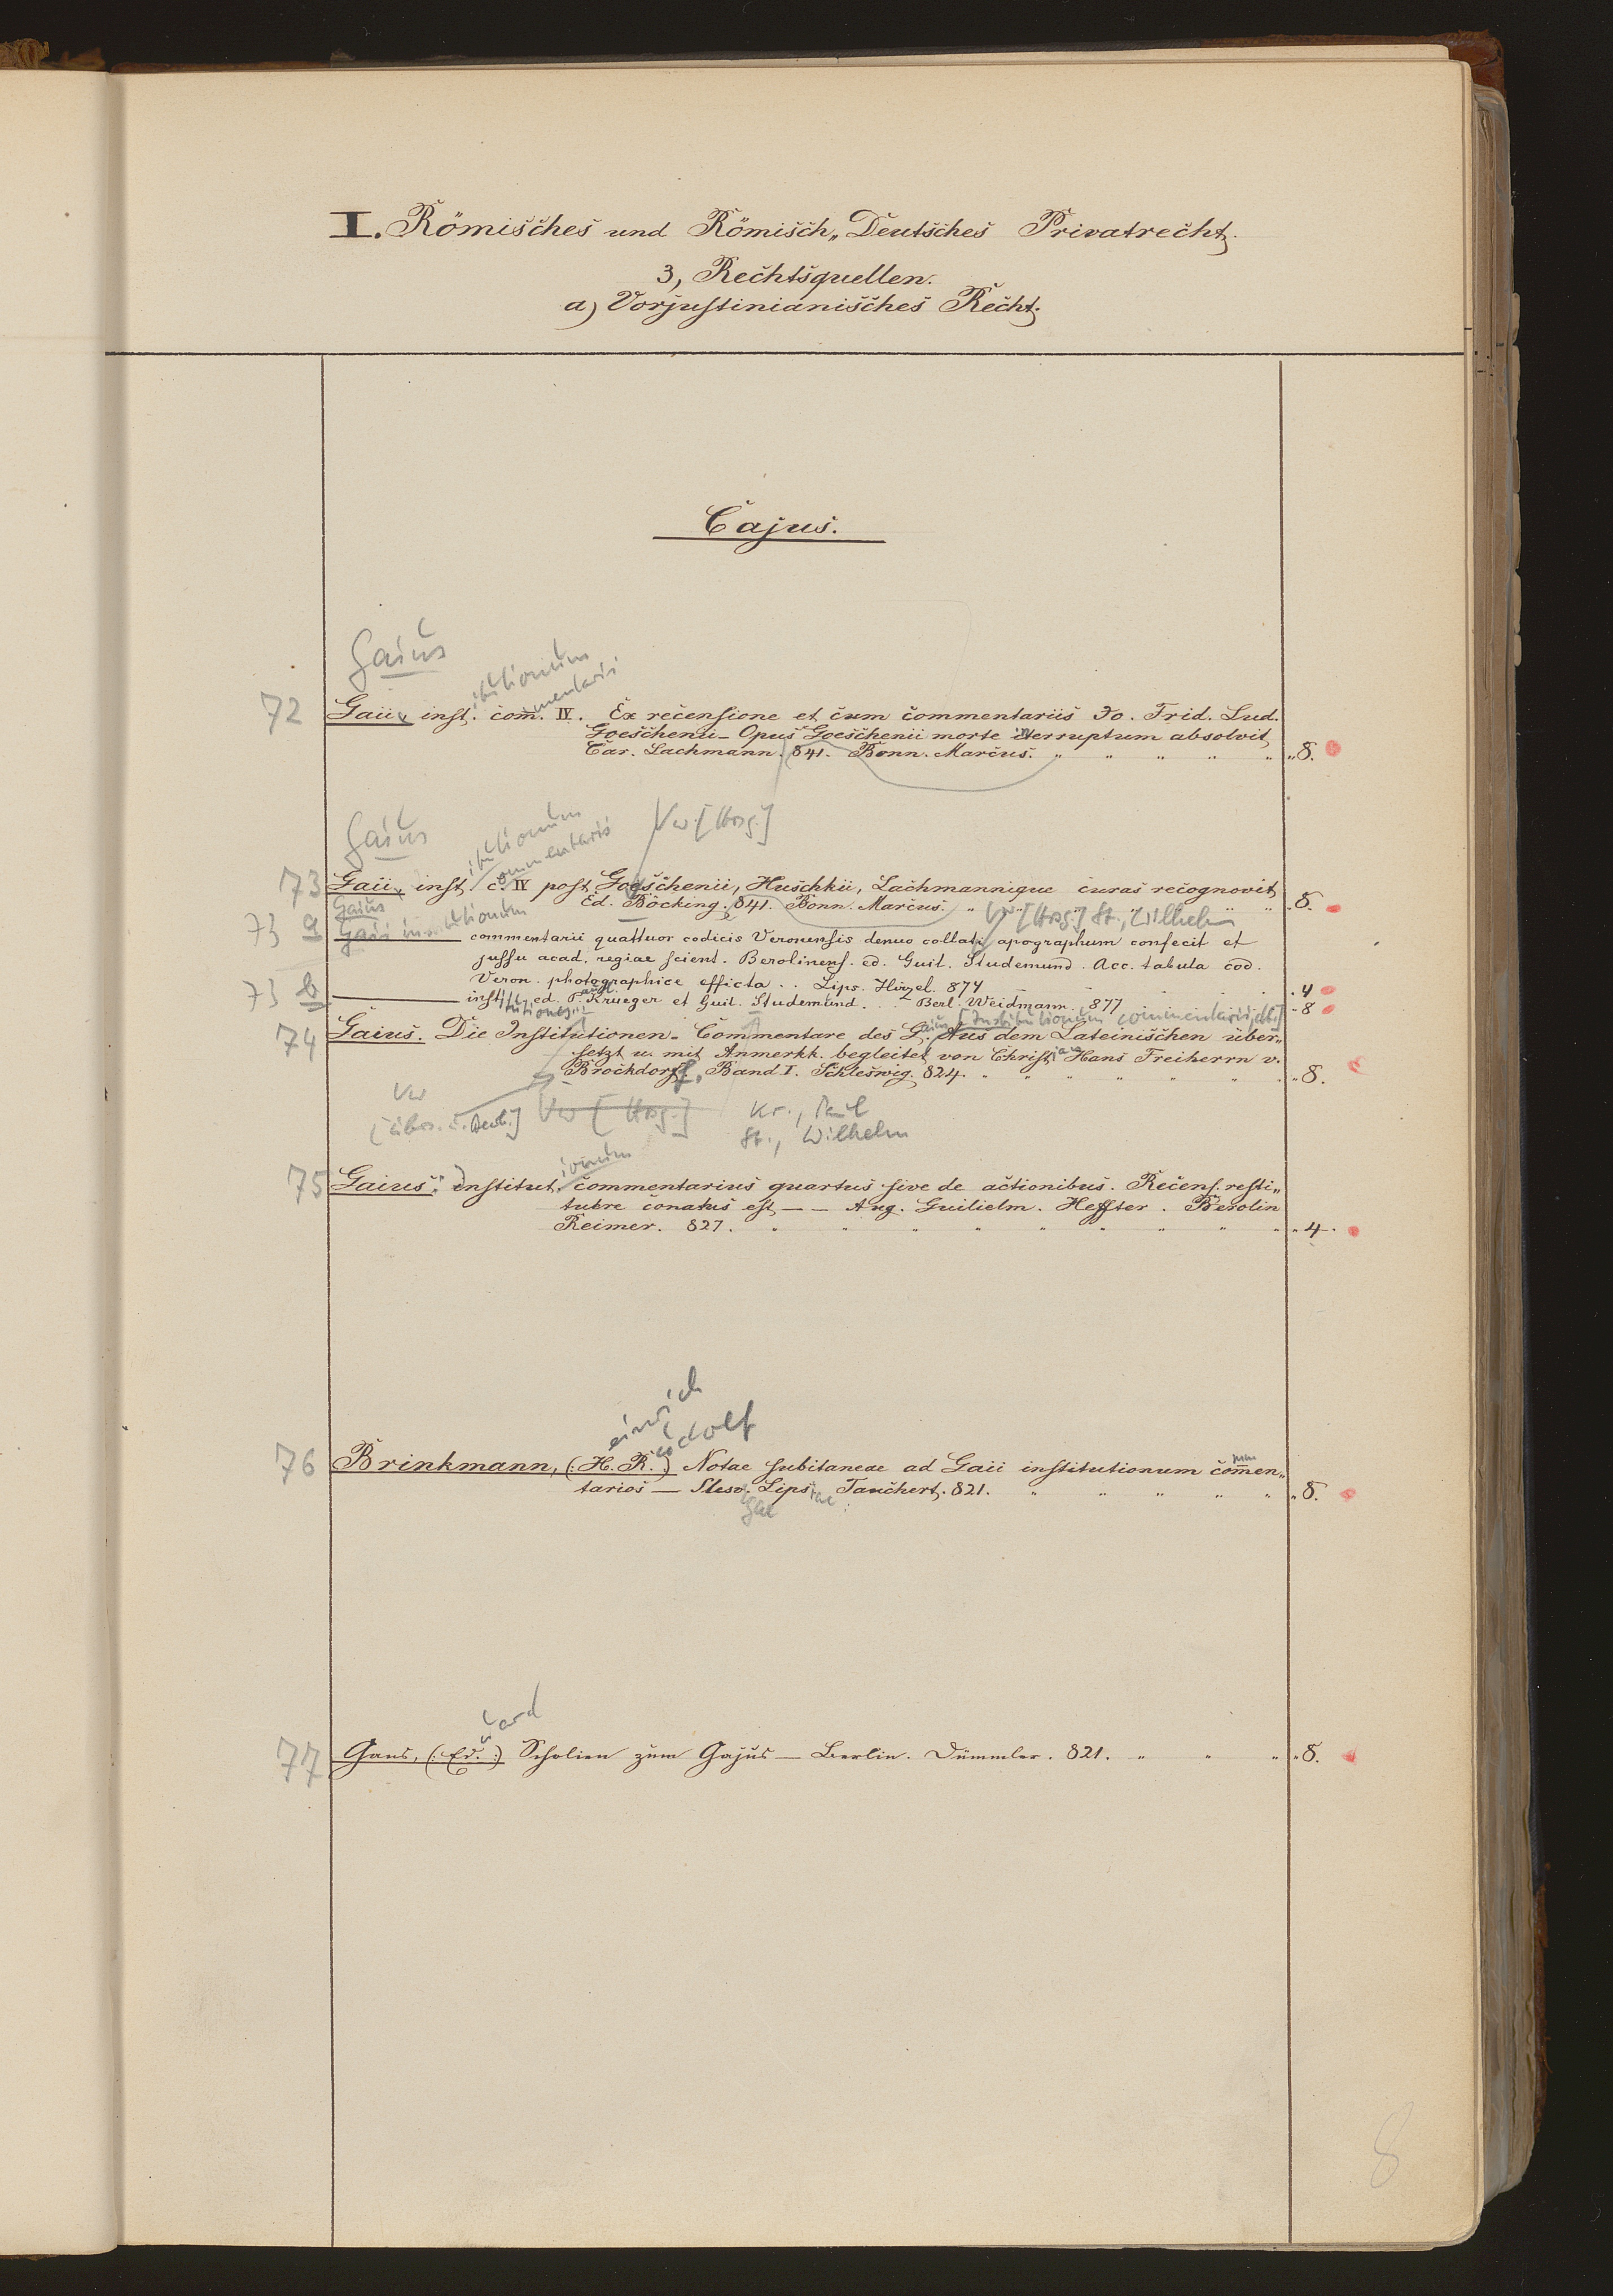 I. Römisches und Römisch„Deutsches Privatrecht.
3, Rechtsquellen.
a) Vorjustinianisches Recht.
Cajus.
Gaius
itutionum
mentarii
72 Gaii inst. com̅. IV. Ex recensione et cum commentariis Jo. Frid. Lud.
Goeschenii — Opus Goeschenii morte interruptum absolvit
Car. Lachmann. 841. Bonn. Marcus. „ „ „ „ „ „ 8.
Gaius
itutionum
ommentarii
Vw. [Hrsg.]
73 Gaii inst. c. IV post Goeschenii, Huschkii, Lachmannique curas recognovit
Ed. Böcking. 841. Bonn. Marcus. „ „ „ „ 8.
Gaius
Vw [Hrsg.] St., Wilhelm
73 a Gaii institutionum
commentarii quattuor codicis Veronensis denuo collati apographum confecit et
jussu acad. regiae scient. Berolinens. ed. Guil. Studemund. Acc. tabula cod.
Veron. photographice efficta . . Lips. Hirzel. 874 . 4
73 b inst. ed. P. Krueger et Guil. Studemund . . . Berl. Weidmann. 877 . 8
aul
tutiones
aius [Institutionum commentarii, dt.]
74 Gaius. Die Institutionen-Commentare des G. Aus dem Lateinischen über„
setzt u. mit Anmerkk. begleitet von Christ. Hans Freiherrn v.
ian
Brockdorff, Band I. Schleswig. 824. „ „ „ „ „ „ 8.
Vw
[Übers. u. Bearb.] Vw [Hrsg.] Kr., Paul
St., Wilhelm
ionum
75 Gaius. Institut. commentarius quartus sive de actionibus. Recens. resti„
tuere conatus est — — Aug. Guilielm. Heffter. Berolin
Reimer. 827. „ „ „ „ „ „ „ 4.
einrich
udolf
76 Brinkmann, (: H. R. :) Notae subitaneae ad Gaii institutionum com̅en„
mm
tarios — Slesv. Lips. Tauchert. 821. „ „ „ „ „ „ 8.
gae iae
uard
77 Gans, (: Ed. :) Scholien zum Gajus — Berlin. Dümmler. 821. „ „ „ „ 8.
8